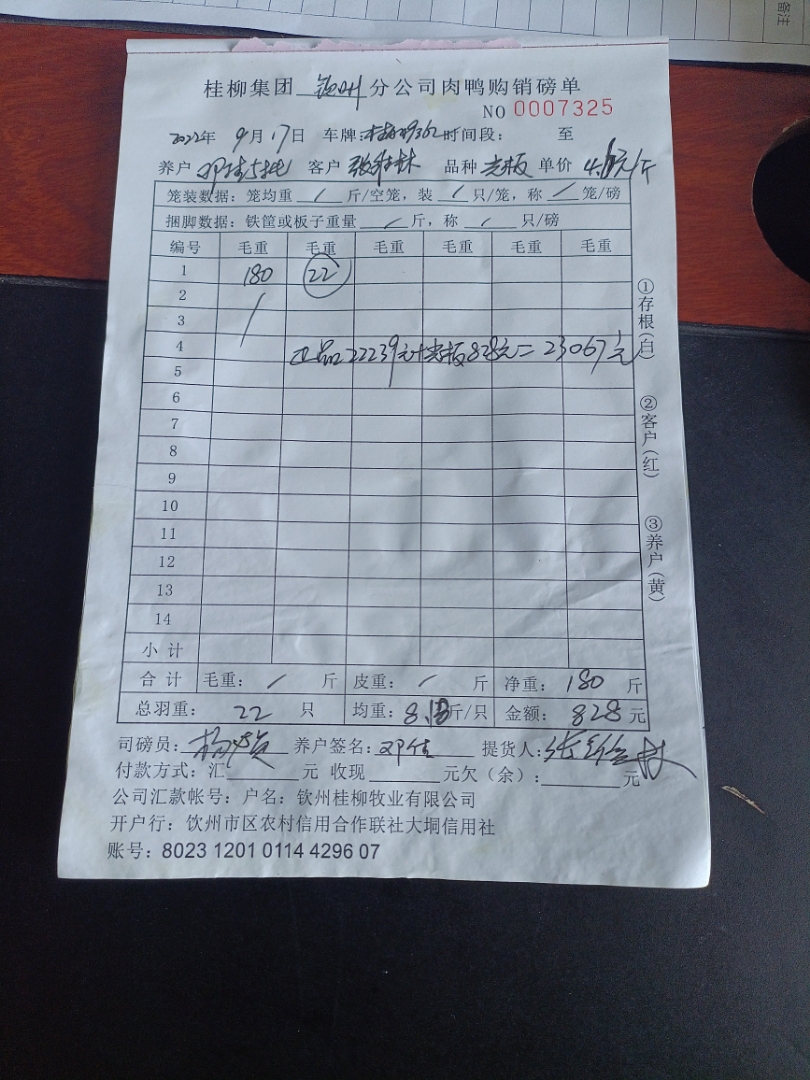 备注
桂柳集团 钦州 分公司肉鸭购销磅单
NO 0007325
2022年 9月17日 车牌: 时间段: 至
养户 客户 张 林 品种 光板 单价 4.6元/斤
笼装数据:笼均重 / 斤/空笼,装 / 只/笼,称 / 笼/磅
捆脚数据:铁筐或板子重量 / 斤,称 / 只/磅
编号 毛重 毛重 毛重 毛重 毛重 毛重
1 180 22
2 /
3
4 正品22239元+光板828元=23067元
5
6
7
8
9
10
11
12
13
14
小计
合计 毛重: / 斤 皮重: / 斤 净重: 180 斤
总羽重: 22 只 均重: 8.18斤/只 金额: 828 元
司磅员: 杨 养户签名: 邓佳 提货人: 张 林
付款方式:汇 元 收现 元欠(余): 元
公司汇款帐号:户名:钦州桂柳牧业有限公司
开户行:钦州市区农村信用合作联社大垌信用社
账号:8023 1201 0114 4296 07
①存根(白)
②客户(红)
③养户(黄)